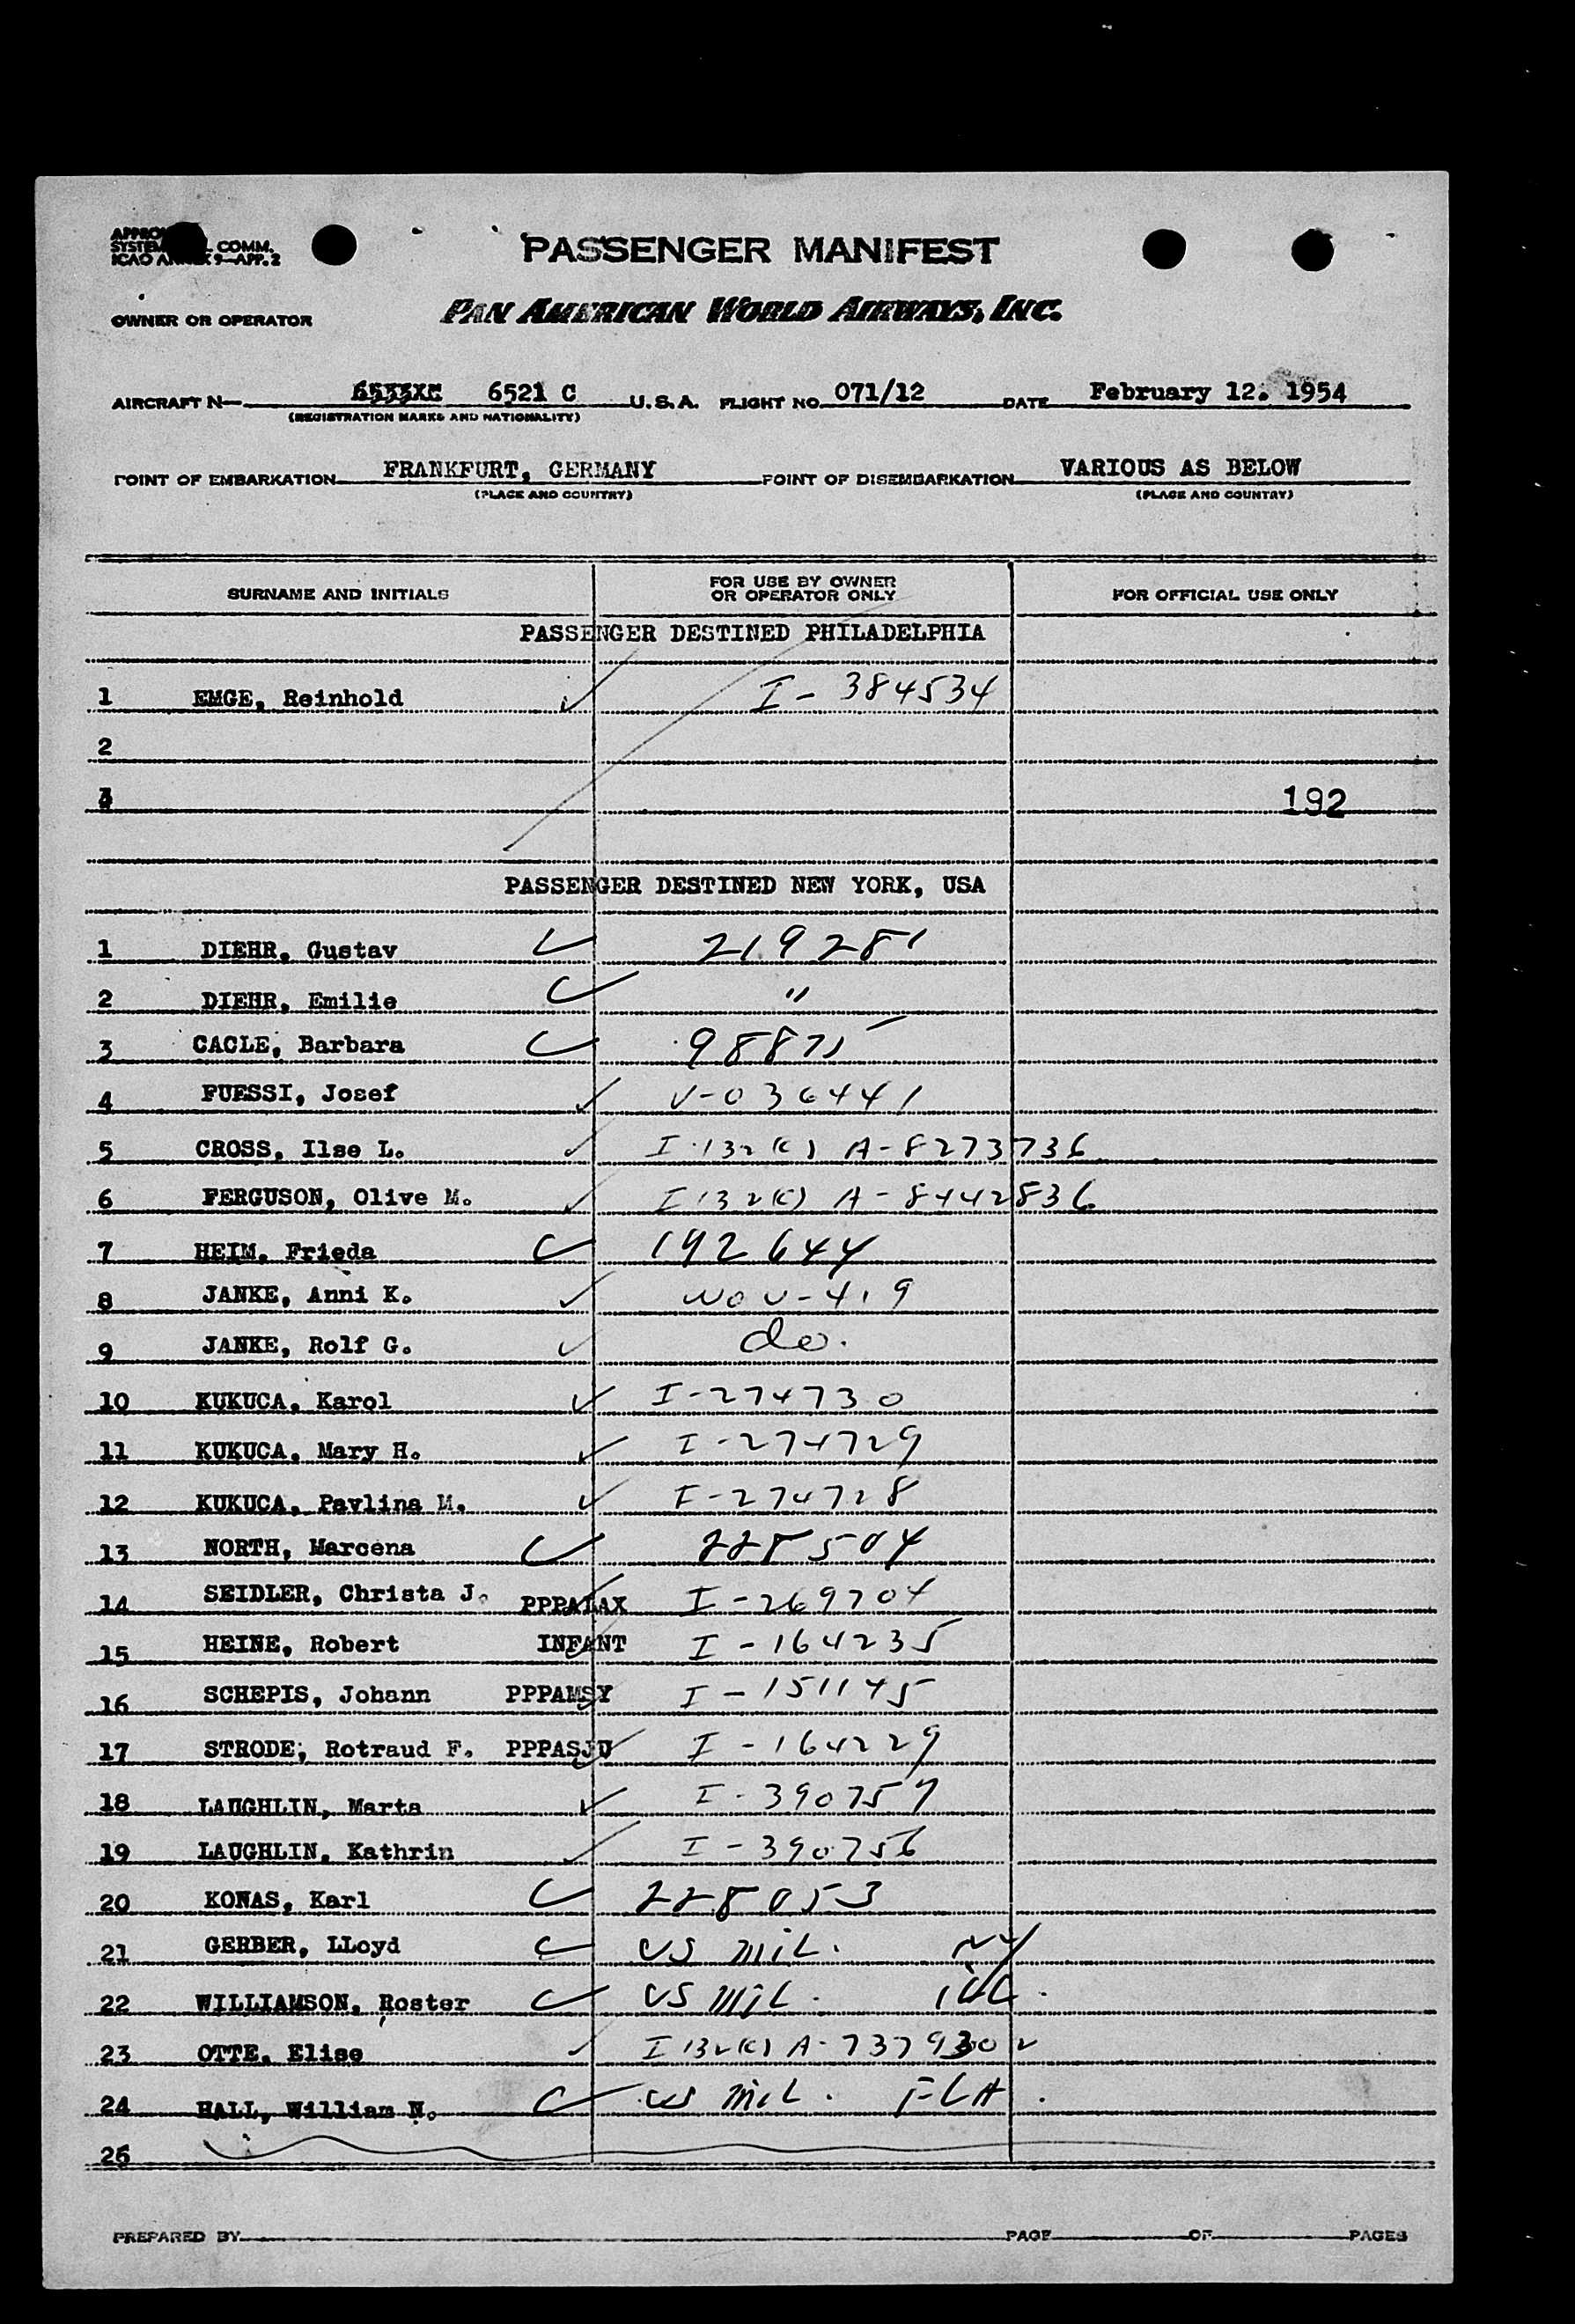 PASSENGER MANIFEST
COMM.
ICAO 9—APP. 2
OWNER OR OPERATOR PAN AMERICAN WORLD AIRWAYS, INC.
AIRCRAFT N— 6521 C U.S.A. FLIGHT NO. 071/12 DATE February 12. 1954
(REGISTRATION MARKS AND NATIONALITY)
POINT OF EMBARKATION FRANKFURT, GERMANY POINT OF DISEMBARKATION VARIOUS AS BELOW
(PLACE AND COUNTRY) (PLACE AND COUNTRY)
SURNAME AND INITIALS FOR USE BY OWNER OR OPERATOR ONLY FOR OFFICIAL USE ONLY
PASSENGER DESTINED PHILADELPHIA
1 EMGE, Reinhold I-384534
2
3 192
PASSENGER DESTINED NEW YORK, USA
1 DIEHR, Gustav 219281
2 DIEHR, Emilie "
3 CACLE, Barbara 98875
4 FUESSI, Josef V-036441
5 CROSS, Ilse L. I-132(c) A-8273736
6 FERGUSON, Olive M. I 132(c) A-8442836
7 HEIM, Frieda 192644
8 JANKE, Anni K. 419
9 JANKE, Rolf G. do.
10 KUKUCA, Karol I-274730
11 KUKUCA, Mary H. I-274729
12 KUKUCA, Pavlina M. I-274728
13 NORTH, Marcena 228504
14 SEIDLER, Christa J. PPPALAX I-269704
15 HEINE, Robert INFANT I-164235
16 SCHEPIS, Johann PPPAMSY I-151145
17 STRODE, Rotraud F. PPPASJU I-164229
18 LAUGHLIN, Marta I-390757
19 LAUGHLIN, Kathrin I-390756
20 KONAS, Karl 228053
21 GERBER, LLoyd US Mil. NY
22 WILLIAMSON, Roster US Mil. Ill.
23 OTTE, Elise I 132(c) A-7379302
24 HALL, William N. US Mil. FLA.
25
PREPARED BY PAGE OF PAGES